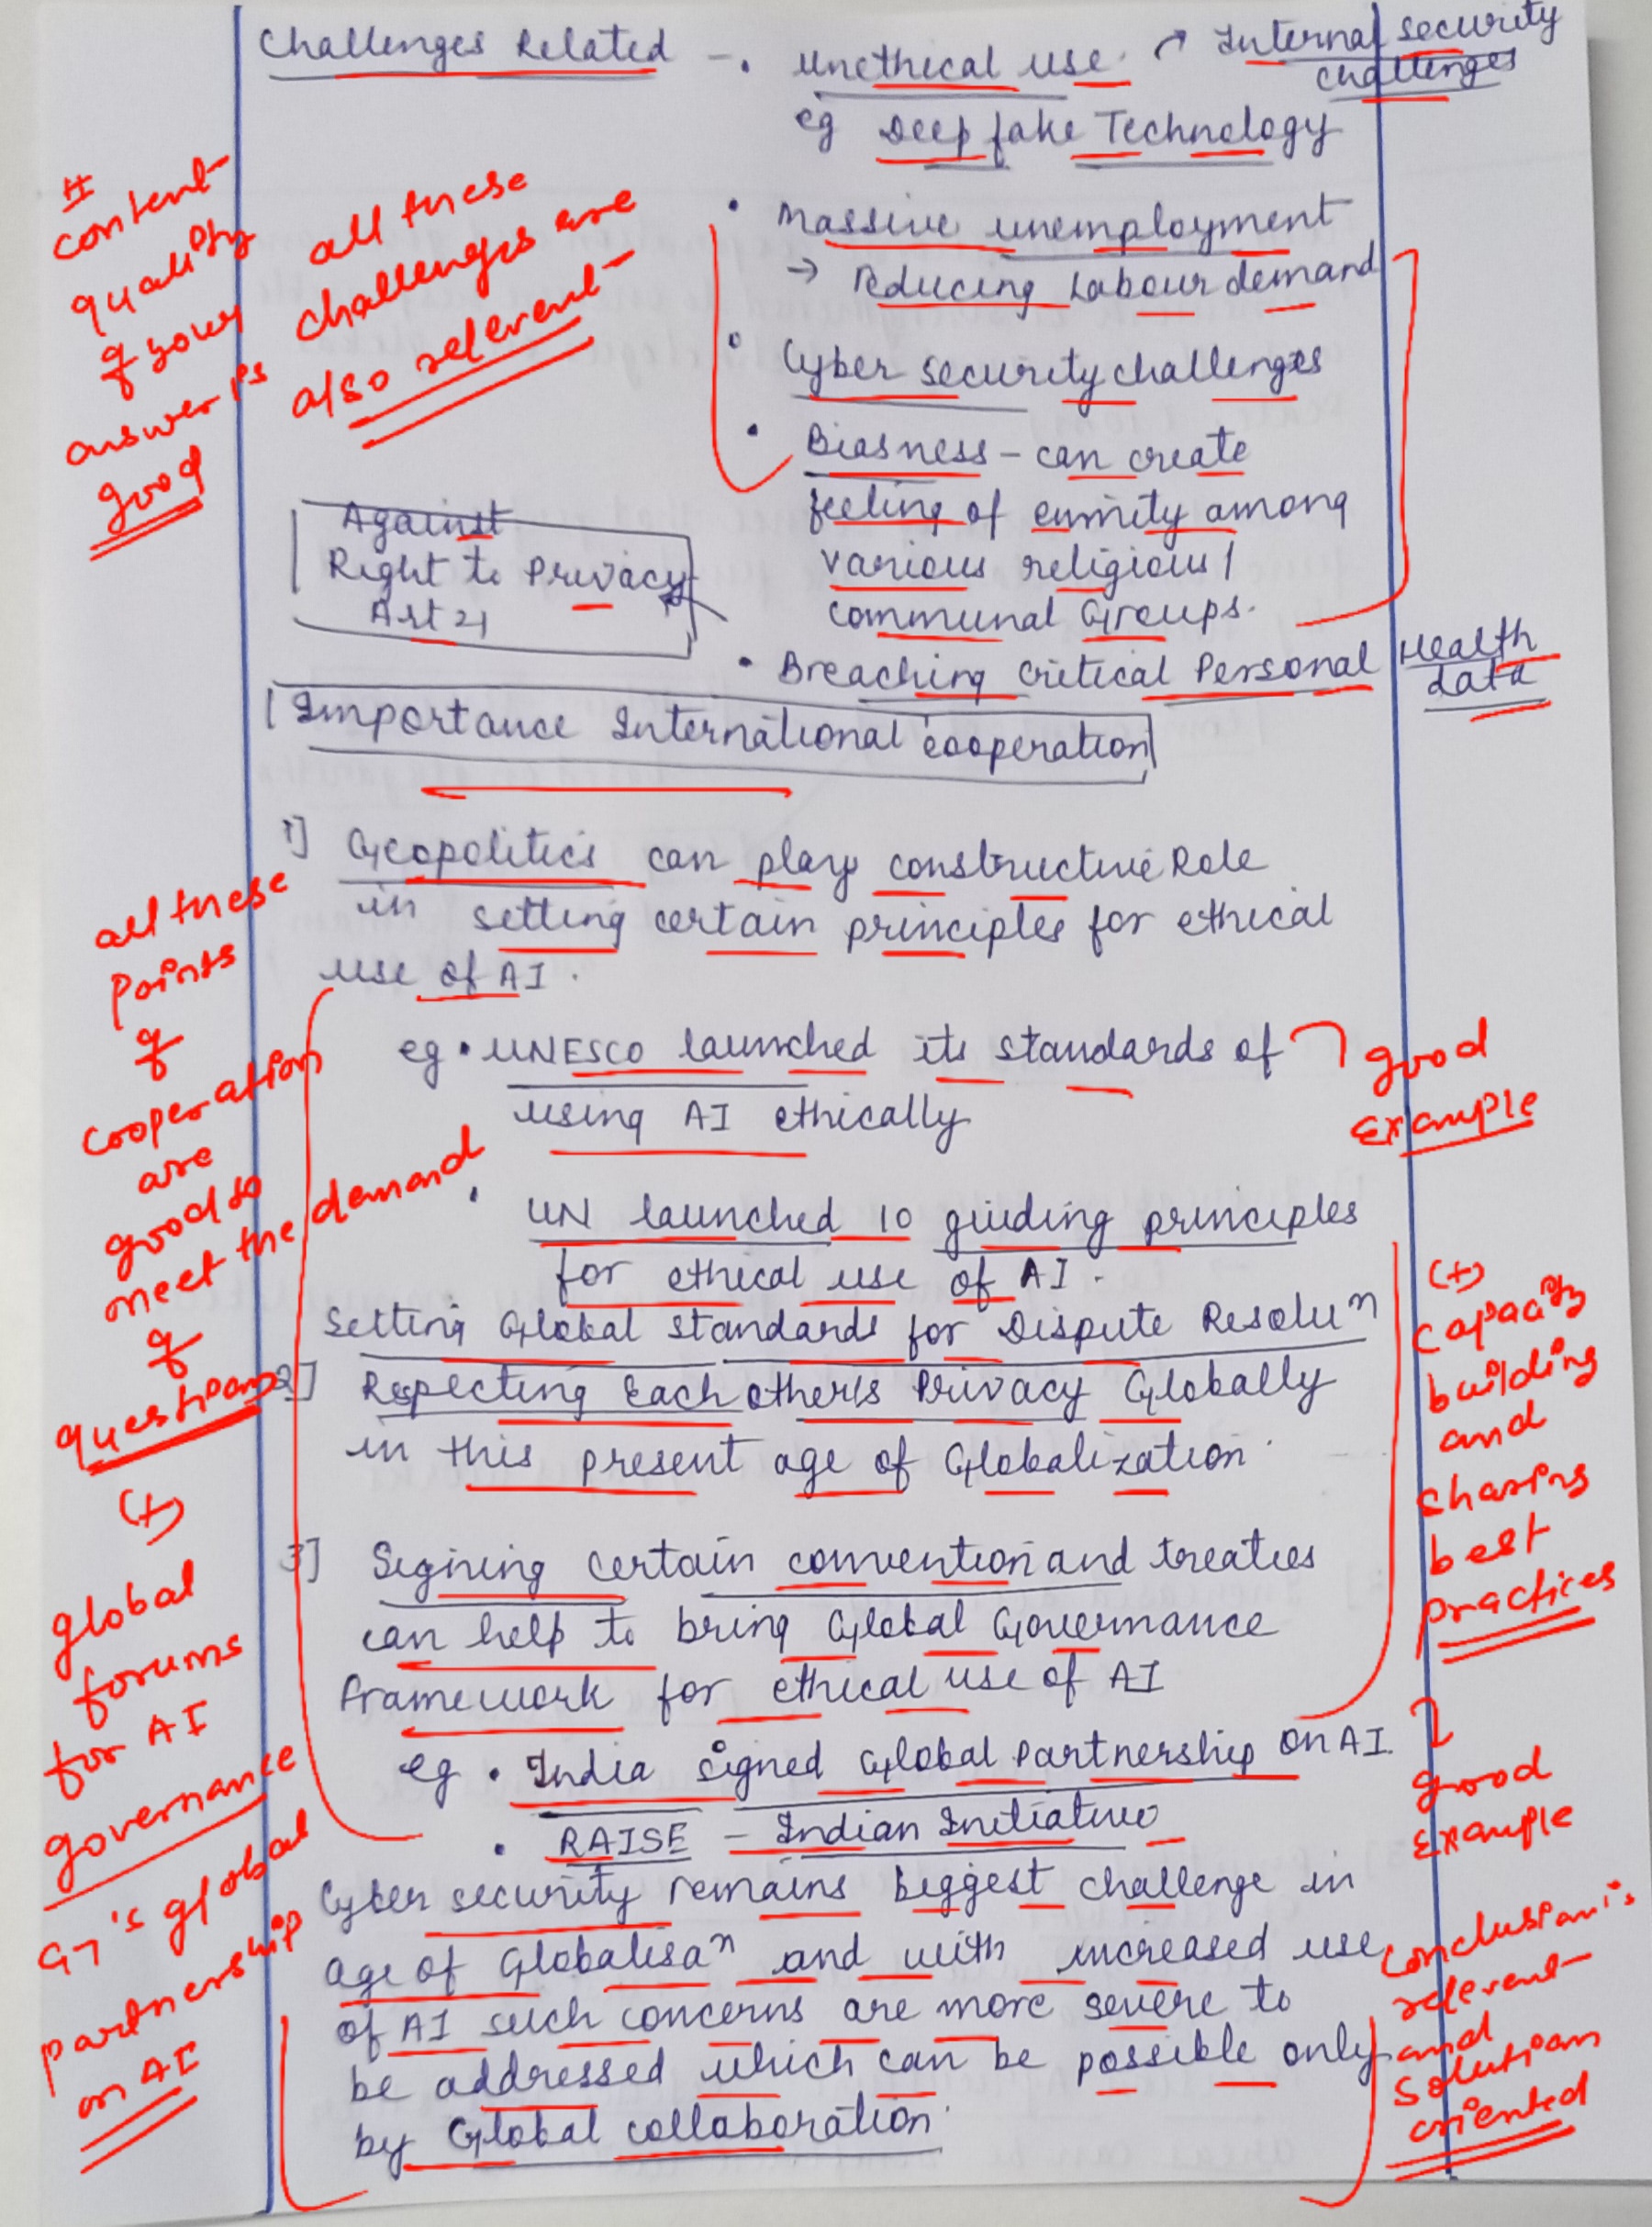 Challenges Related - • Unethical use. → Internal security
challenges
eg Deep fake Technology
• Massive unemployment
→ reducing Labour demand
• Cyber security challenges
• Biasness - can create
feeling of enmity among
various religious/
communal Groups.
• Breaching critical Personal Health
data
Against
Right to Privacy
Art 21
# content
quality
of your
answer is
good
all these
challenges are
also relevent
Importance International cooperation
1] Geopolitics can play constructive Role
in setting certain principles for ethical
use of AI.
eg • UNESCO launched its standards of
using AI ethically
good
example
• UN launched 10 guiding principles
for ethical use of AI.
Setting Global standards for Dispute Resoluⁿ
2] Respecting Each other's Privacy Globally
in this present age of Globalization.
3] Signing certain convention and treaties
can help to bring Global Governance
framework for ethical use of AI
eg • India signed Global Partnership on AI.
• RAISE - Indian Initiative
all these
points
of
cooperation
are
good so
meet the demand
of
questions
(+)
global
forums
for AI
governance
G7's global
partnership
on AI
(+)
capacity
building
and
sharing
best
practices
good
example
Cyber security remains biggest challenge in
age of Globalisaⁿ and with increased use
of AI such concerns are more severe to
be addressed which can be possible only
by Global collaboration.
conclusion is
relevent
and
solution
oriented